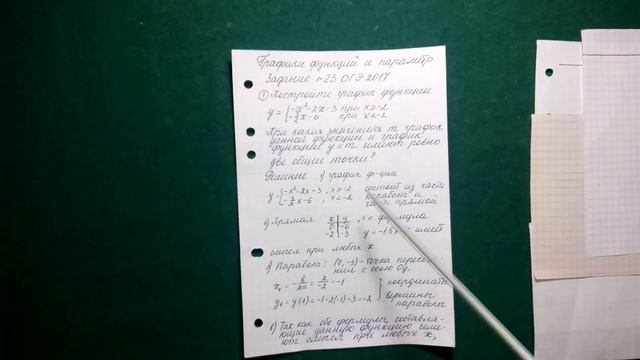 Графики функций и параметр
Задание №23 ОГЭ 2017
① Постройте график функции
y = { -x²-2x-3 при x ≥ -2
-3/2x-6 при x < -2
При каких значениях m график
данной функции и график
функции y=m имеют ровно
две общие точки?
Решение 1) график ф-ции
y = { -x²-2x-3, x ≥ -2 состоит из части
-3/2x-6, x < -2 параболы и
части прямой
а) Прямая x | y формула
0 | -6 y = -1,5x имеет
-2 | -3
смысл при любых x
б) Парабола: (0, -3) - точка пересече-
ния с осью Oy,
x₀ = -b/2a = 2/-2 = -1 } координаты
y₀ = y(-1) = -1-2·(-1)-3 = -2 вершины
параболы
в) Так как обе формулы, составля-
ющие данную функцию име-
ют смысл при любых x,